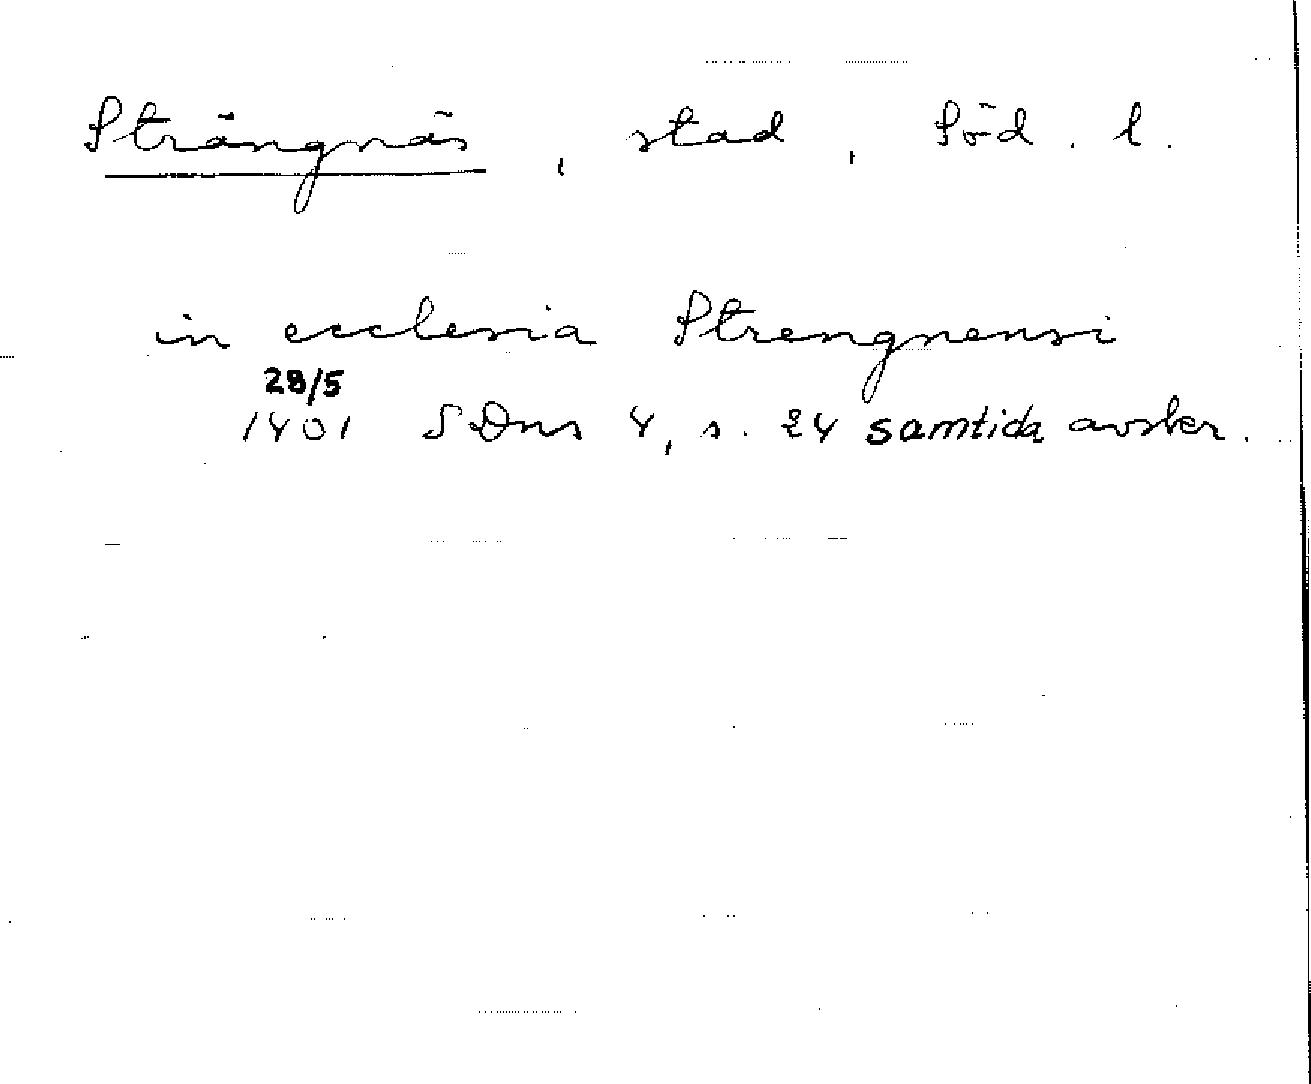 Strängnäs, stad, Söd. l.
in ecclesia Strengnensi
28/5
1401 SDns 4, s. 24 samtida avskr.